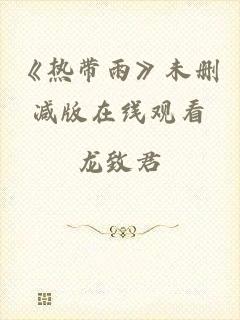 《热带雨》未删
减版在线观看
龙致君